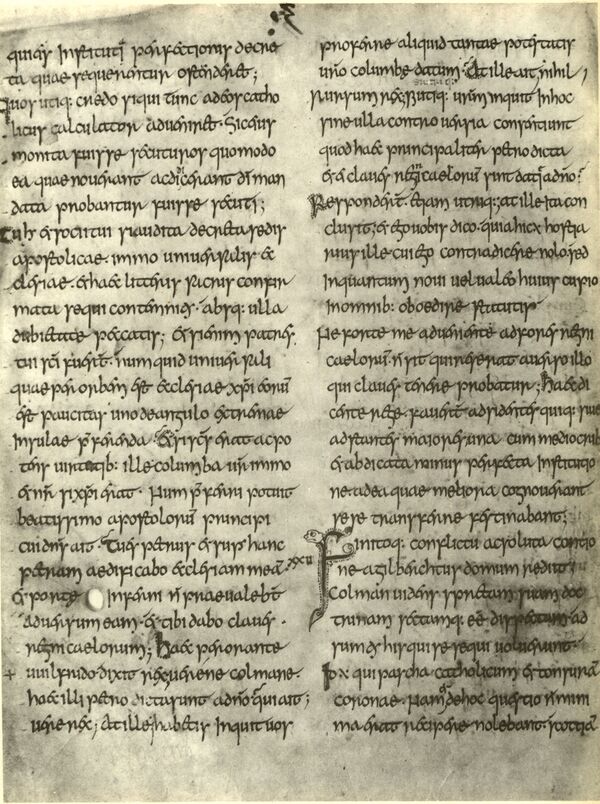 quiaʒ instituti perfectionis decre
ta quae sequerentur ostenderet;
Quos utiq: credo siqui tunc adeos catho
licus calculator adueniret. Sic eius
monita fuisse secuturos quomodo
ea quae nouerant acdidicerant dī man
data probantur fuisse secuti;
Tuh et socii tui si audita decreta sedis
apostolicae. immo uniuersalis e
clesiae. et haec litteris sacris confir
mata sequi contemnitis. absq: ulla
dubietate peccatis; etsi enim patres
tui sc̄i fuer̄. num quid uniuersali
quae per orbem est ecclesiae xp̄i eorū
est paucitas uno de angulo extremae
insulae praeferenda. Et si sc̄s erat ac po
tens uirtutib: ille columba ur̄ immo
et nr̄ si xp̄i erat. Num praeferri potuit
beatissimo apostolorū principi
cui dn̄s ait. Tu es petrus et super hanc
petram aedificabo ecclesiam meā.
et portę inferni n̄ praeualebt̄
aduersum eam. et tibi dabo claues
regni caelorum; haec perorante
uilfrido dixit rex uerene colmane.
haec illi petro dicta sunt adn̄o qui ait;
uere rex; At ille habetis inquit uos
proferre aliquid tantae potestatis
ur̄o columbe datum. At ille ait. nihil
rursum rex; Si utiq: urm̄ inquit inhoc
sine ulla controuersia consentiunt
quod haec principaliter petro dicta
et ei claues regni caelorum sint datę adn̄o.
Responder̄t. etiam utriq:; at ille ita con
clusit; et ego uobis dico. quia hic x hostia
rius ille cui ego contradicere nolo sed
inquantum noui uel ualeo huius cupio
inomnib: oboedire statutis
Ne forte me aduenientē adfores regni
caelorum. n̄ sit qui reserat auerso illo
qui claues tenere probatur. haec di
cente rege. fauert̄ adsidentes quiq: siue
adstantes maiores una cum mediocrib:
et abdicata minus perfecta institutio
ne adea quae meliora cognouerant
sese transferre festinabant;
xxui Finitoq: conflictu acsoluta contio
ne agilberchtus domum rediit
Colman uidens spretam suam doc
trinam sectamq: eē dispectam ad
sumtis his qui se sequi uoluerunt
Id x qui pascha catholicum et tonsuram
coronae. Nam et dehoc questio n̄ mini
ma erat recipere nolebant. scottiam